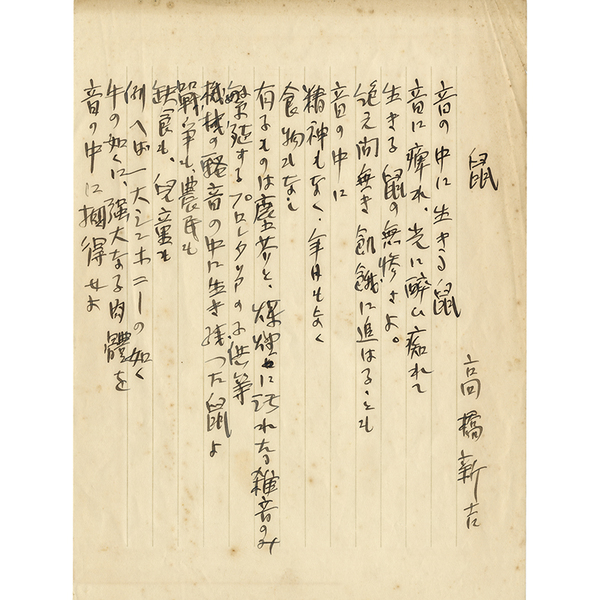 鼠
高橋新吉
音の中に生きる鼠
音に痺れ、光に醉ひ痴れて
生きる鼠の無慘さよ。
絶え間無き飢餓に追はるゝとも
音の中に
精神もなく、年月もなく
食物もなし
有るものは塵芥と、煤煙に汚れたる雜音のみ
繁殖するプロレタリアの子供等
機械の騒音の中に生き残つた鼠よ
争も、農民も
も、兒童も
例へば一大シンホニーの如く
牛の如くに、強大なる肉體を
音の中に得せよ